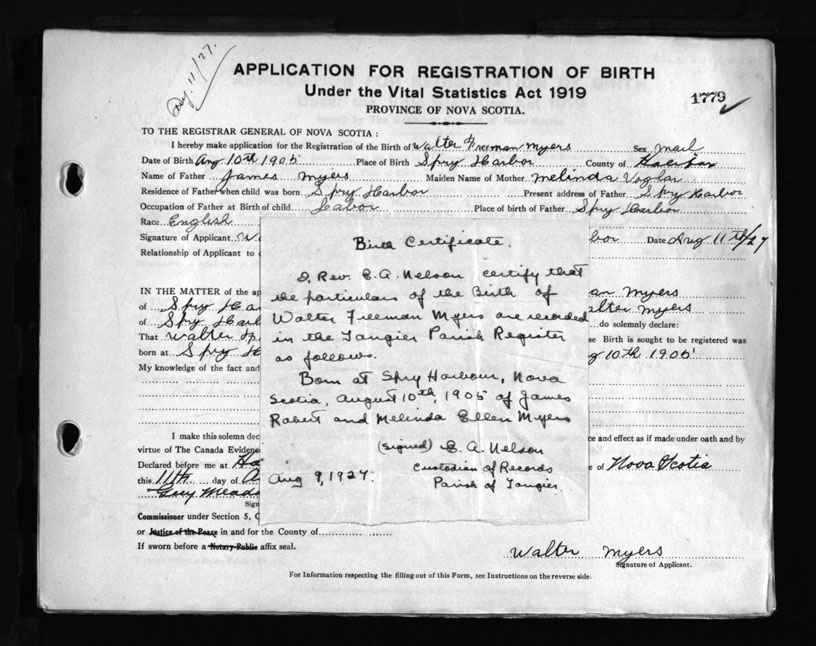 Aug. 11/27.
APPLICATION FOR REGISTRATION OF BIRTH
Under the Vital Statistics Act 1919
PROVINCE OF NOVA SCOTIA.
1779
TO THE REGISTRAR GENERAL OF NOVA SCOTIA:
I hereby make application for the Registration of the Birth of Walter Freeman Myers Sex Mail
Date of Birth Aug 10th 1905 Place of Birth Spry Harbor County of Halifax
Name of Father James Myers Maiden Name of Mother Melinda Voglar
Residence of Father when child was born Spry Harbor Present address of Father Spry Harbor
Occupation of Father at Birth of child Labor Place of birth of Father Spry Harbor
Race English
Signature of Applicant bor Date Aug 11th/27
Relationship of Applicant to
Birth Certificate.
I, Rev. E. A. Nelson certify that
the particulars of the Birth of
Walter Freeman Myers are recorded
in the Tangier Parish Register
as follows.
Born at Spry Harbour, Nova
Scotia, August 10th, 1905 of James
Robert and Melinda Ellen Myers
(signed) E. A. Nelson
Custodian of Records
Parish of Tangier.
Aug 9, 1927.
IN THE MATTER of the ap an Myers
of Spry Ha alter Myers
of Spry Harb do solemnly declare:
That Walter se Birth is sought to be registered was
born at Spry H g 10th 1905
My knowledge of the fact and
I make this solemn dec ce and effect as if made under oath and by
virtue of The Canada Evidenc
Declared before me at Ha e of Nova Scotia
this 11th day of A
Guy Meado
Sign
Commissioner under Section 5, C
or Justice of the Peace in and for the County of
If sworn before a Notary Public affix seal.
Walter Myers
Signature of Applicant.
For Information respecting the filling out of this Form, see Instructions on the reverse side.